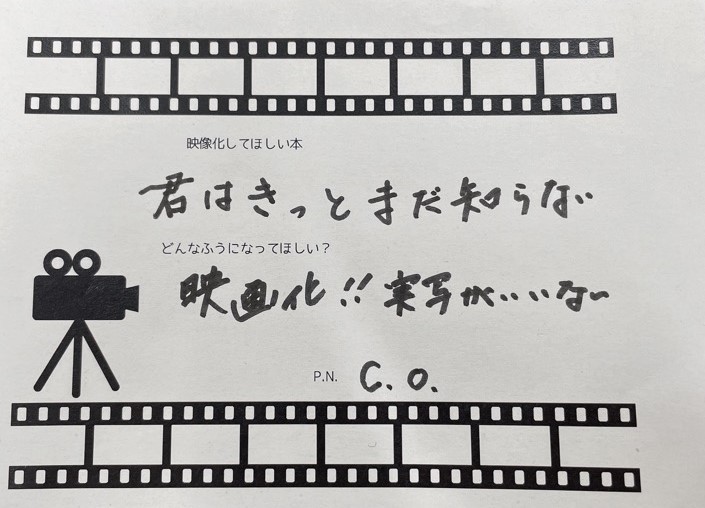 映像化してほしい本
君はきっとまだ知らない
どんなふうになってほしい？
映画化!! 実写がいいな〜
P.N. C.O.